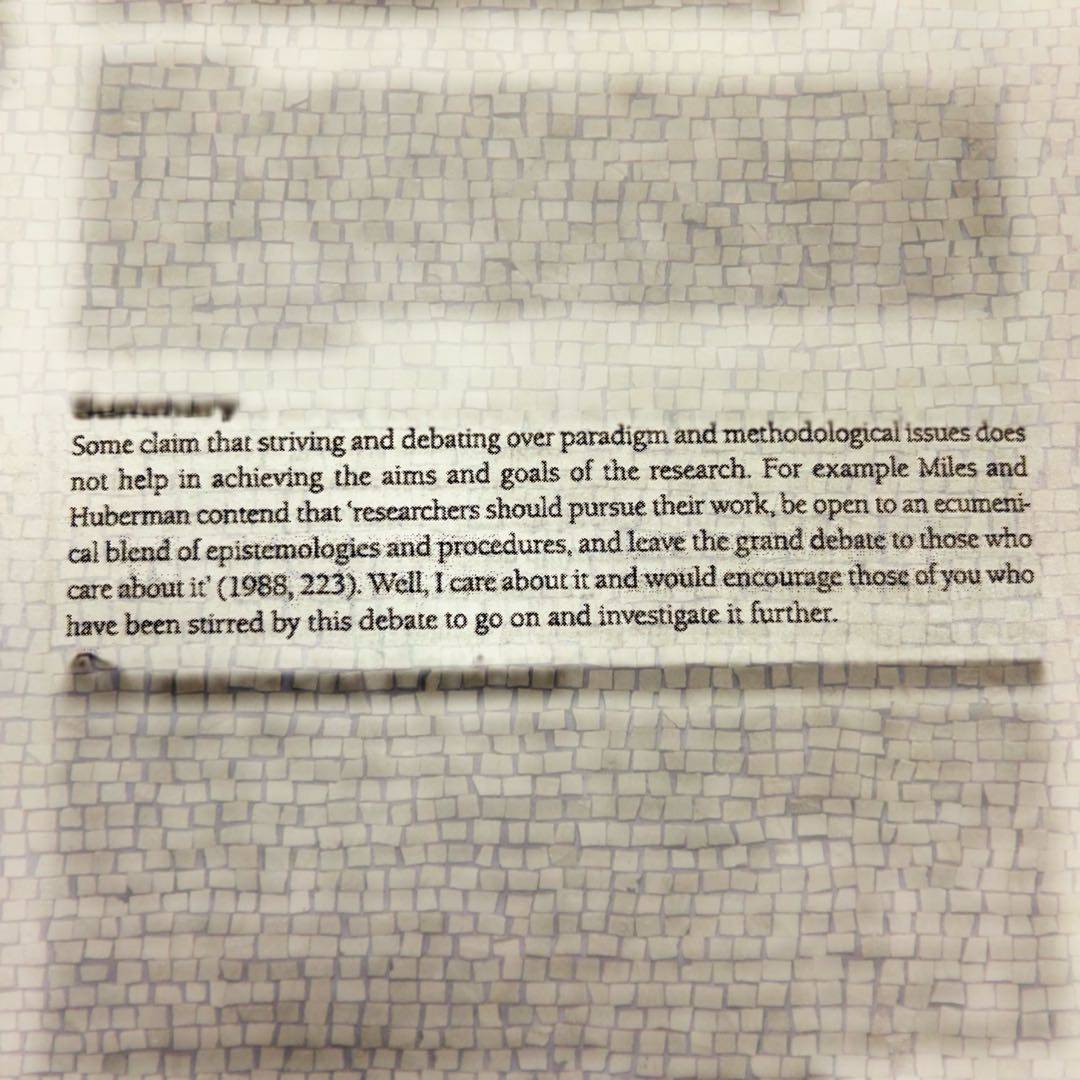 Summary
Some claim that striving and debating over paradigm and methodological issues does
not help in achieving the aims and goals of the research. For example Miles and
Huberman contend that ‘researchers should pursue their work, be open to an ecumeni-
cal blend of epistemologies and procedures, and leave the grand debate to those who
care about it’ (1988, 223). Well, I care about it and would encourage those of you who
have been stirred by this debate to go on and investigate it further.